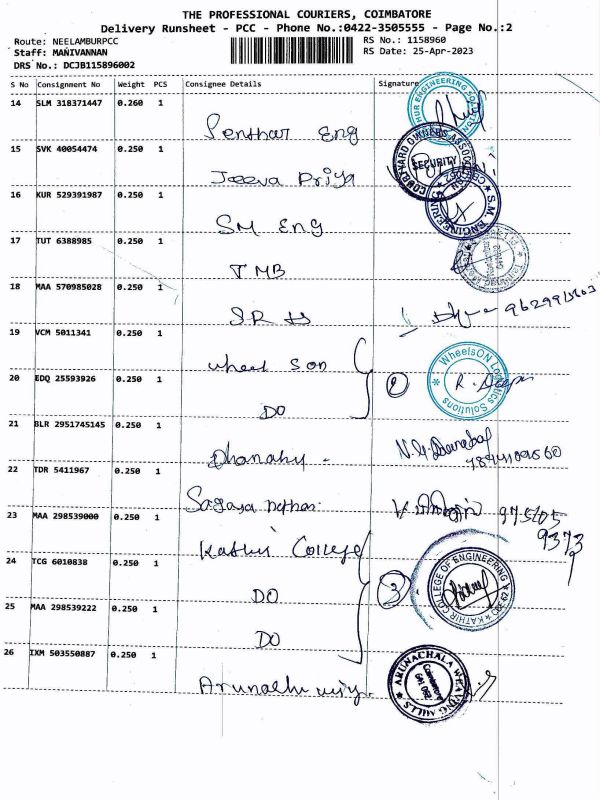 THE PROFESSIONAL COURIERS, COIMBATORE
Delivery Runsheet - PCC - Phone No.:0422-3505555 - Page No.:2
Route: NEELAMBURPCC RS No.: 1158960
Staff: MANIVANNAN RS Date: 25-Apr-2023
DRS No.: DCJB115896002
S No Consignment No Weight PCS Consignee Details Signature
14 SLM 318371447 0.260 1
Penthar Eng
15 SVK 40054474 0.250 1
COURTYARD OWNERS ASSOCIATION
SECURITY
Jeeva Priya
16 KUR 529391987 0.250 1
S.M. ENGINEERING
SM Eng
17 TUT 6388985 0.250 1
TMB
18 MAA 570985028 0.250 1
SR
19 VCM 5011341 0.250 1
wheel son
WheelsON Logistics Solutions
20 EDQ 25593926 0.250 1
2
DO
21 BLR 2951745145 0.250 1
22 TDR 5411967 0.250 1
23 MAA 298539000 0.250 1
97505
9373
Kathir College
24 TCG 6010838 0.250 1
3
KATHIR COLLEGE OF ENGINEERING
DO
25 MAA 298539222 0.250 1
DO
26 IXM 503550887 0.250 1
ARUNACHALA WEAVING MILLS
Coimbatore
641 062